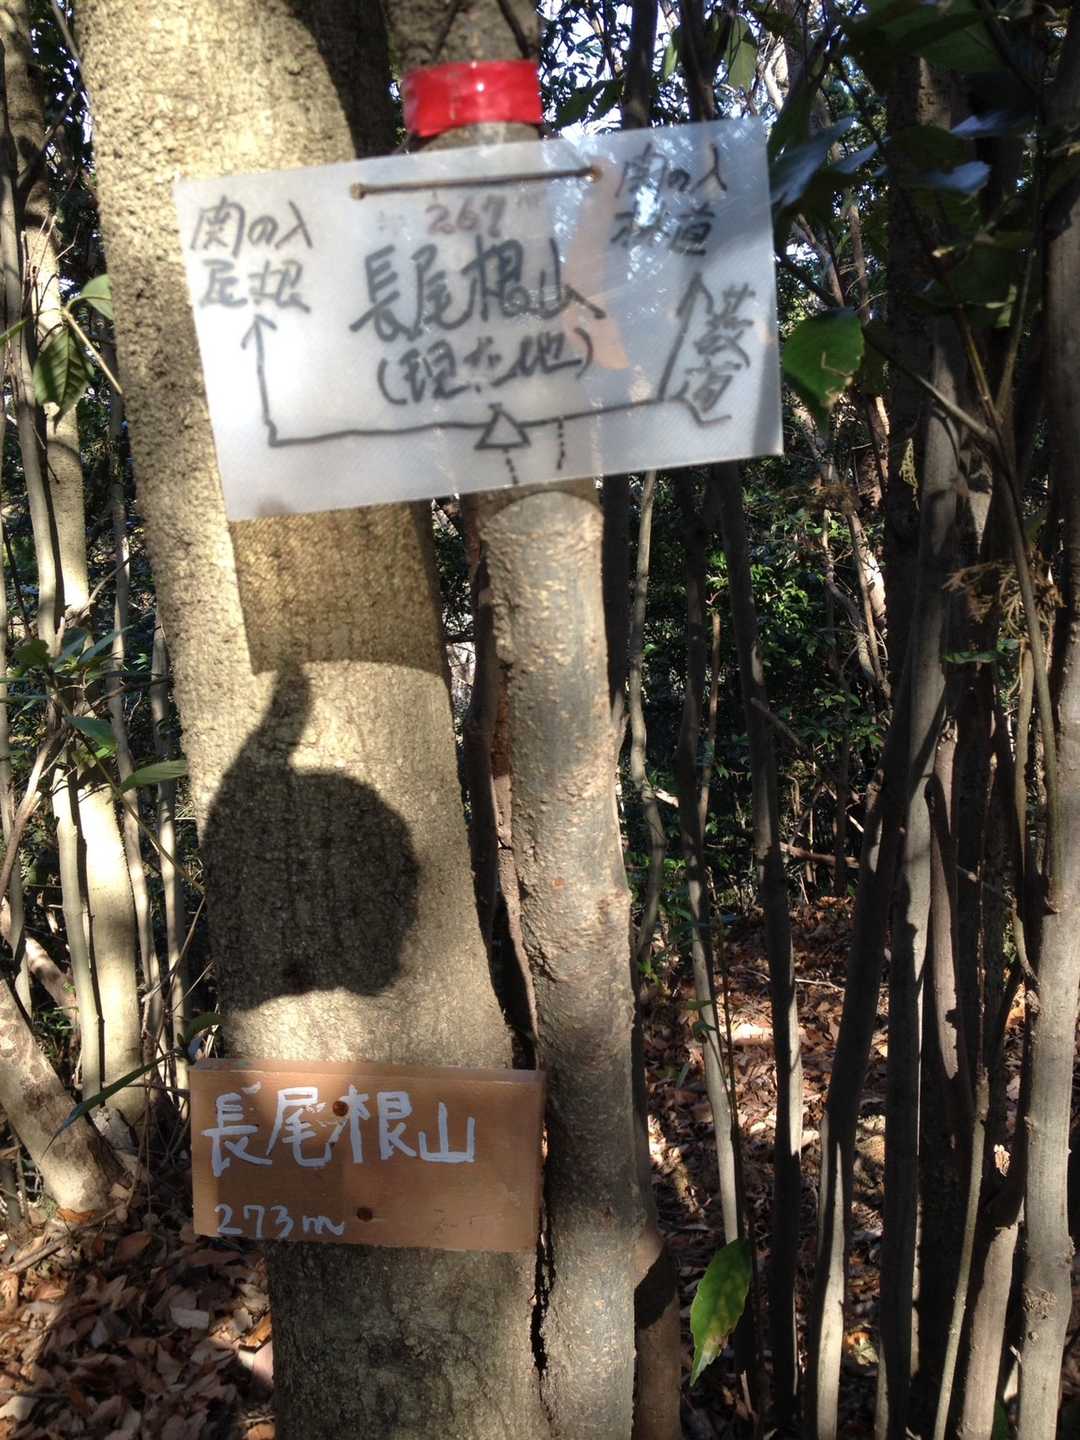 関の入
尾根
267m
長尾根山
(現在地)
関の入
林道
長尾根山
273m